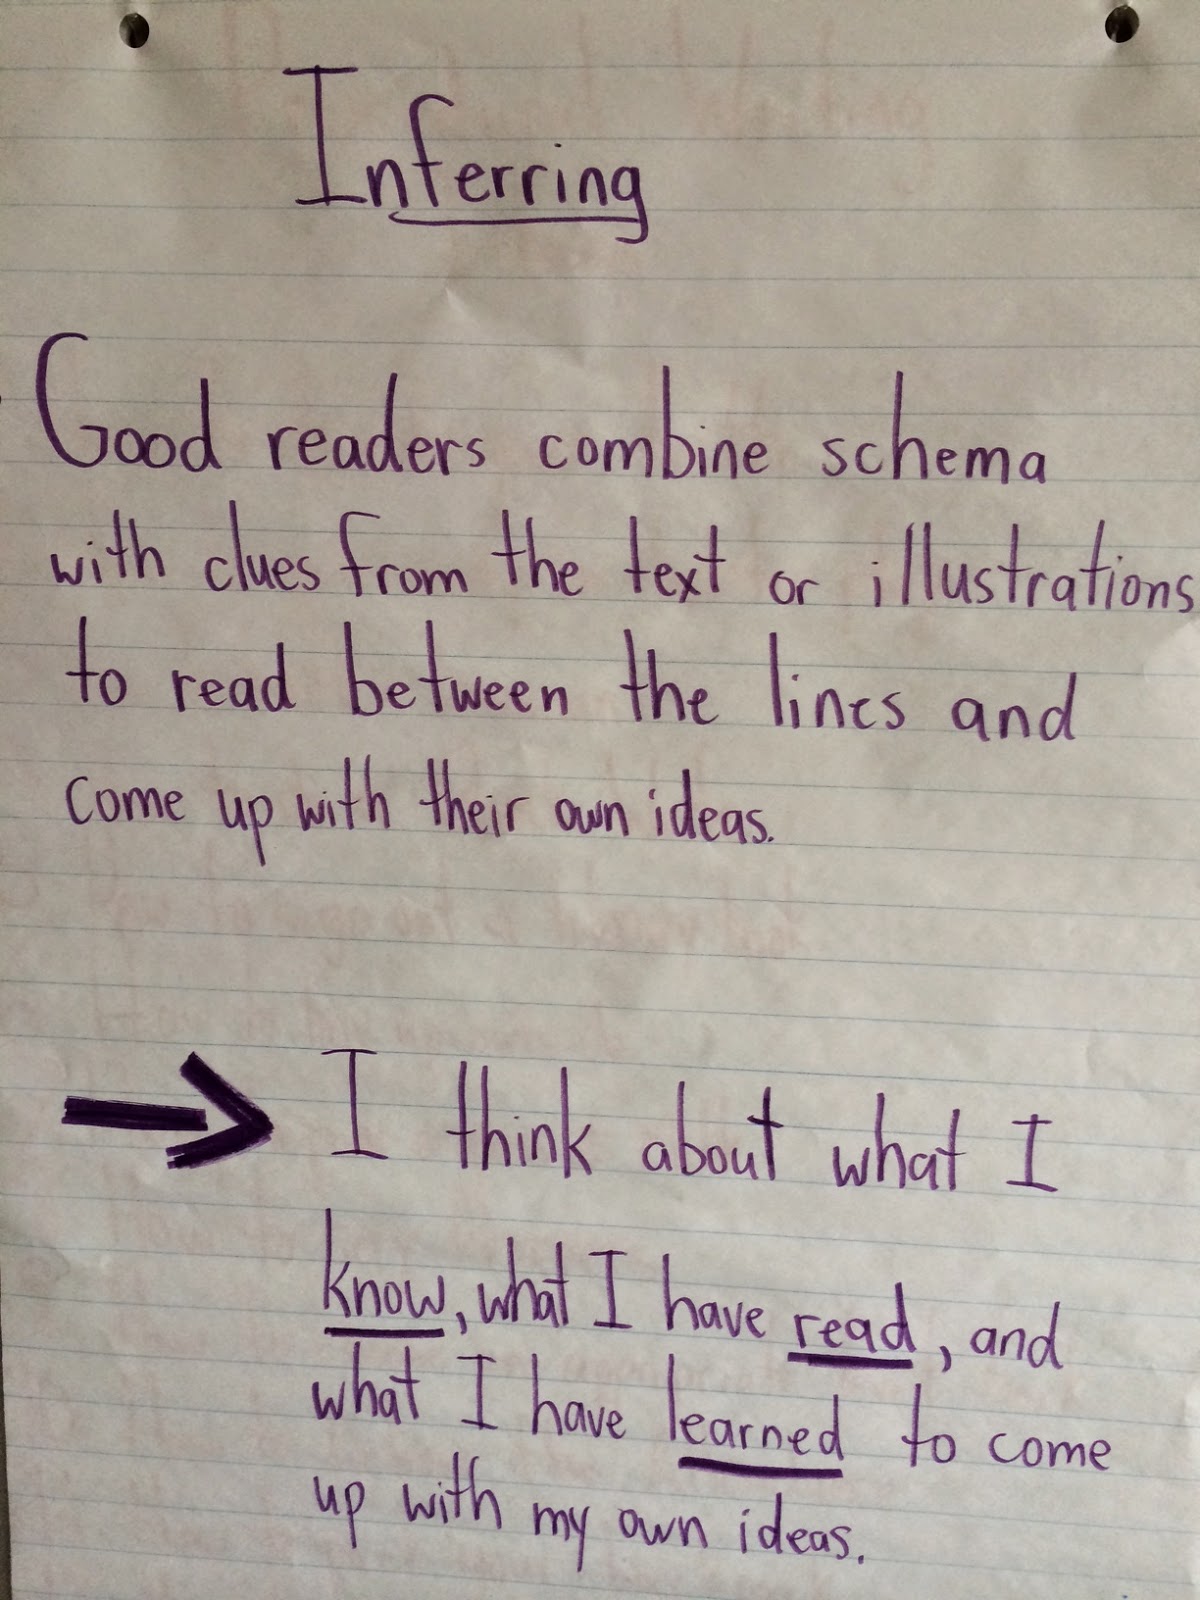 Inferring
Good readers combine schema
with clues from the text or illustrations
to read between the lines and
come up with their own ideas.
I think about what I
know, what I have read, and
what I have learned to come
up with my own ideas.